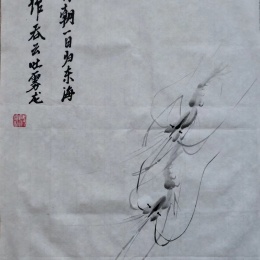 朝一日归东海
作吞云吐雾龙